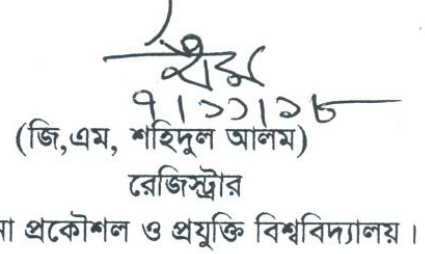 ৭।১১।১৮
(জি,এম, শহিদুল আলম)
রেজিস্ট্রার
না প্রকৌশল ও প্রযুক্তি বিশ্ববিদ্যালয়।